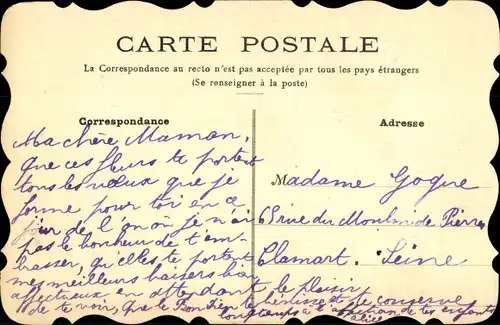 CARTE POSTALE
La Correspondance au recto n'est pas acceptée par tous les pays étrangers
(Se renseigner à la poste)
Correspondance
Ma chère Maman,
que ces fleurs te portent
tous les vœux que je
forme pour toi en ce
jour de l'an où je n'ai
pas le bonheur de t'em-
basser, qu'elles te portent
mes meilleurs baisers bien
affectueux en attendant le plaisir
de te voir, que le Bon Dieu te bénisse et te conserve
longtemps à l'affection de tes enfants
Adresse
Madame Gogue
63 rue du Moulin de Pierre
Clamart. Seine